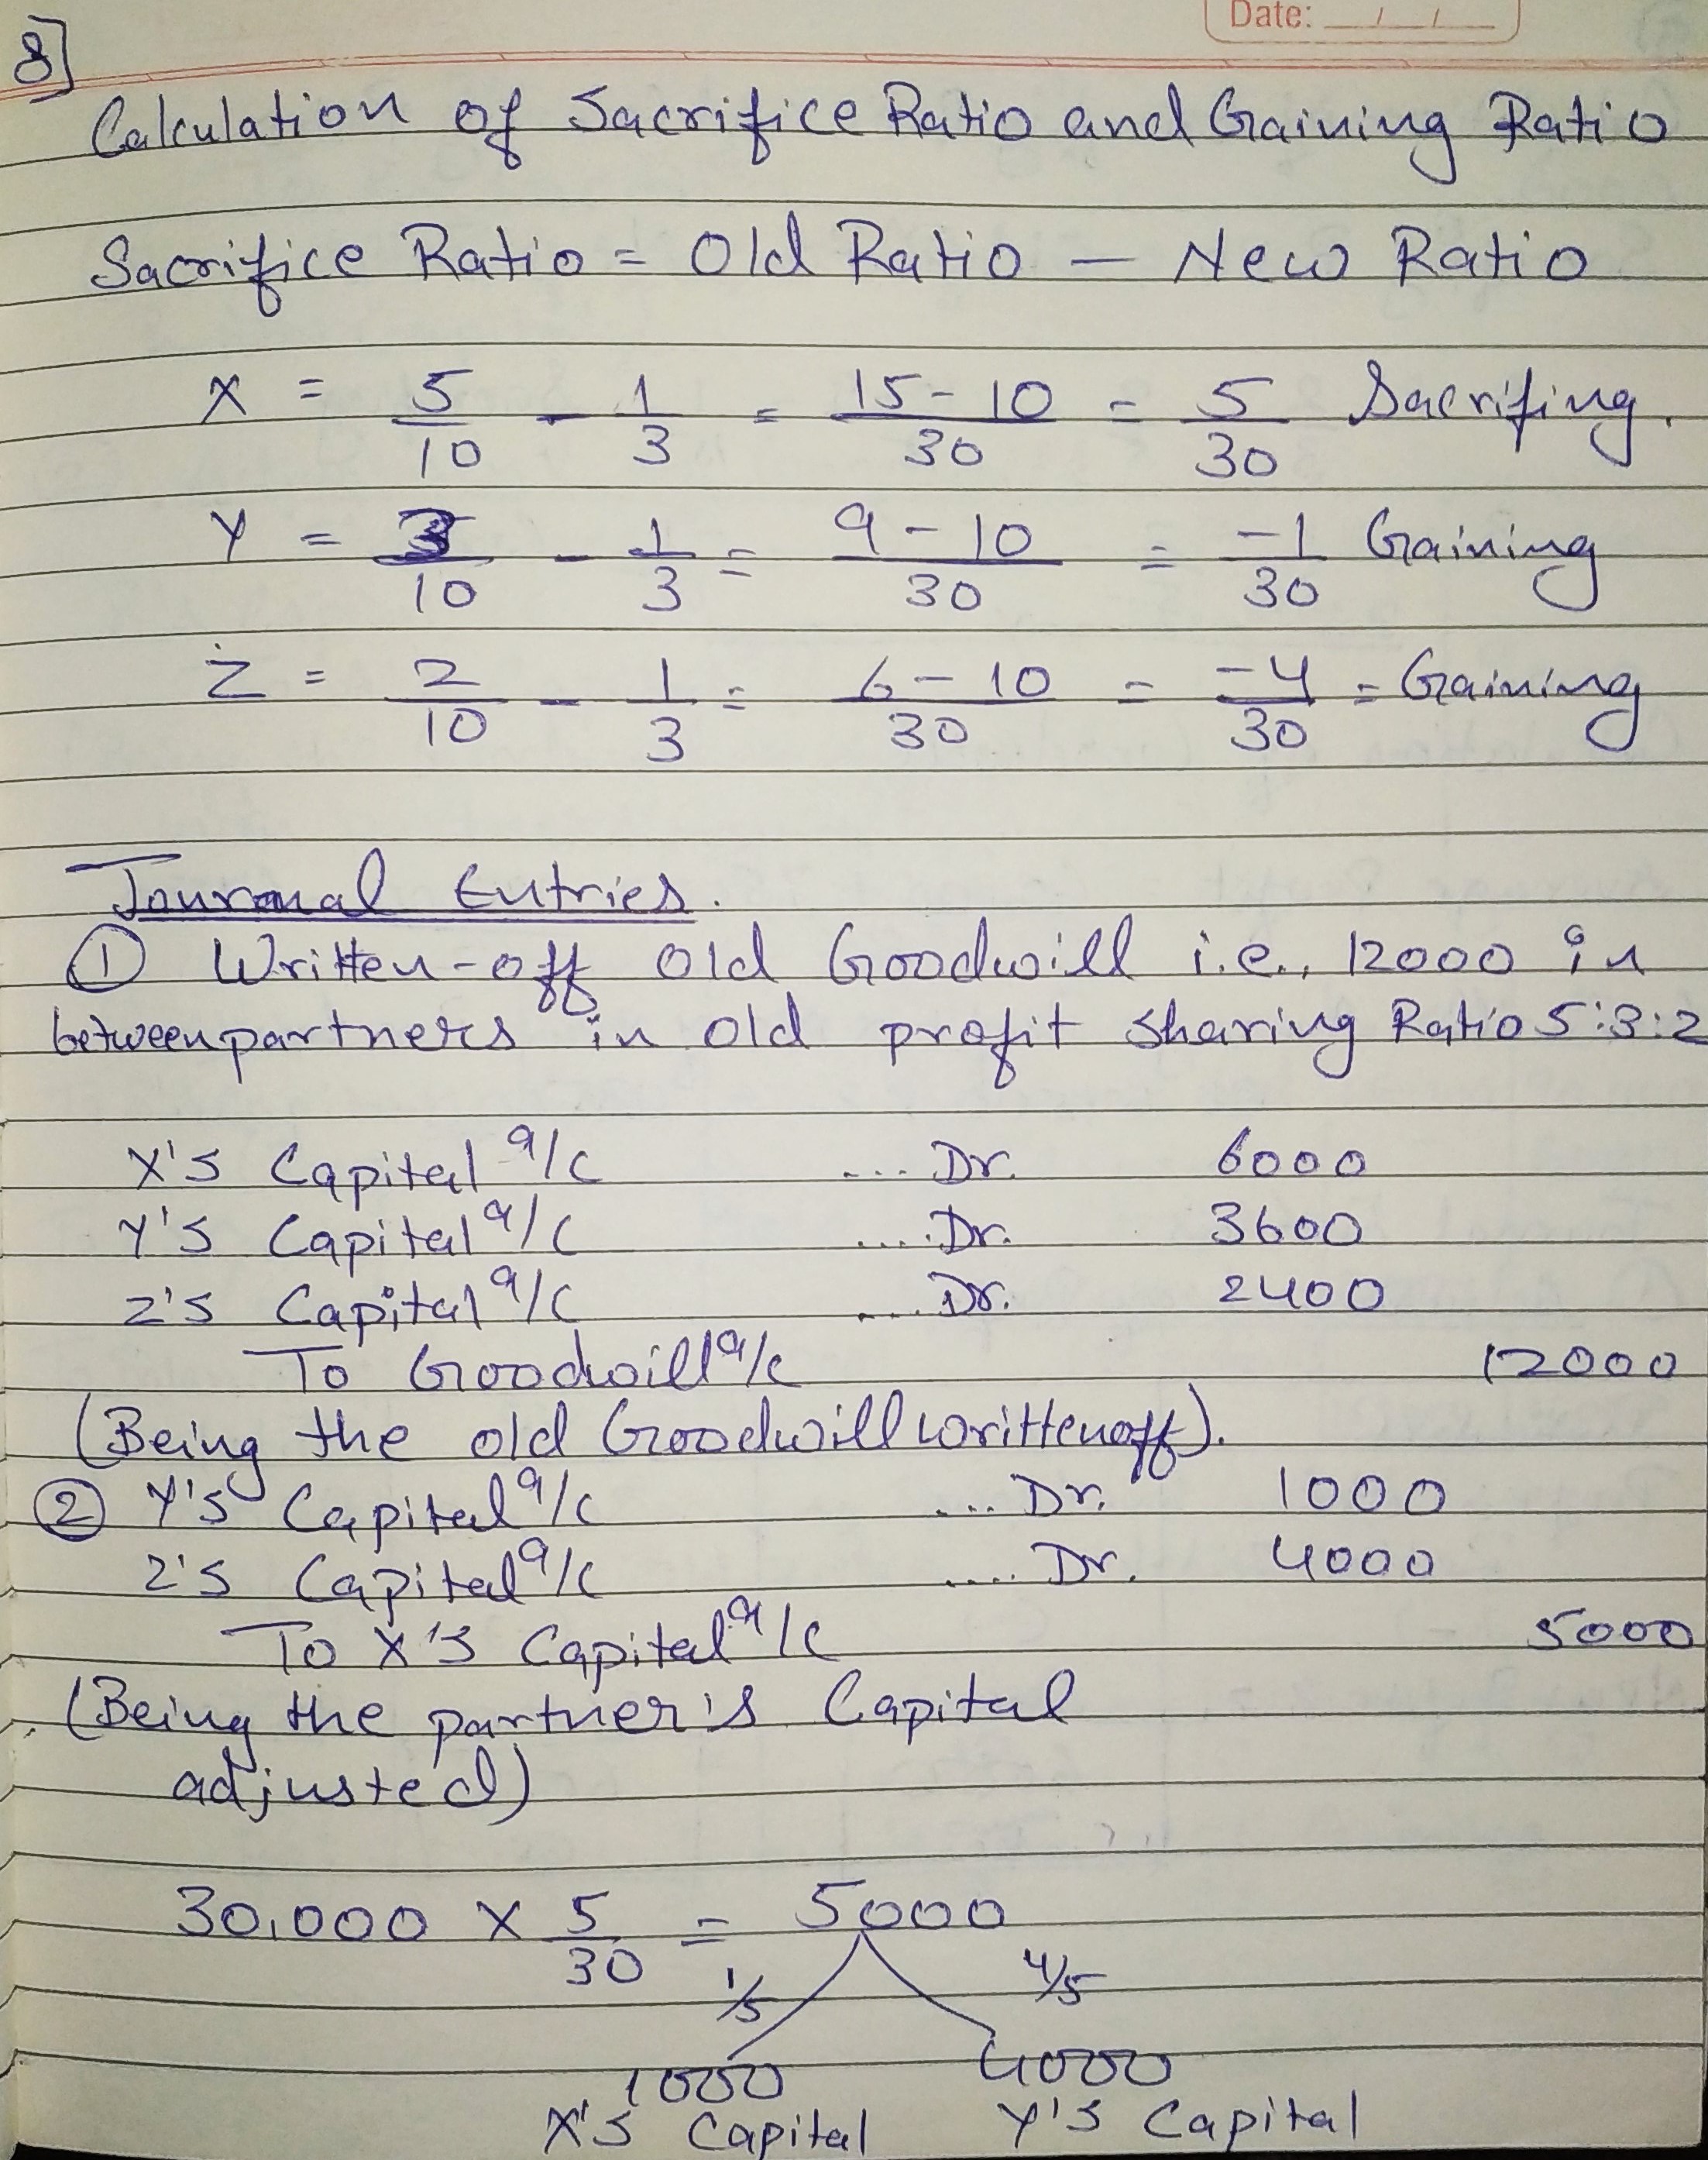 Date: / /
8]
Calculation of Sacrifice Ratio and Gaining Ratio
Sacrifice Ratio = Old Ratio - New Ratio
X = 5/10 - 1/3 = 15-10/30 = 5/30 Sacrifing.
Y = 3/10 - 1/3 = 9-10/30 = -1/30 Gaining
Z = 2/10 - 1/3 = 6-10/30 = -4/30 = Gaining
Journal Entries.
① Written-off old Goodwill i.e., 12000 in
between partners in old profit sharing Ratio 5:3:2
X's Capital a/c .... Dr. 6000
Y's Capital a/c .... Dr. 3600
Z's Capital a/c .... Dr. 2400
To Goodwill a/c 12000
(Being the old Goodwill written off).
② Y's Capital a/c ... Dr. 1000
Z's Capital a/c .... Dr. 4000
To X's Capital a/c 5000
(Being the partner's Capital
adjusted)
30,000 X 5/30 = 5000
1/5 4/5
1000 4000
X's Capital Y's Capital